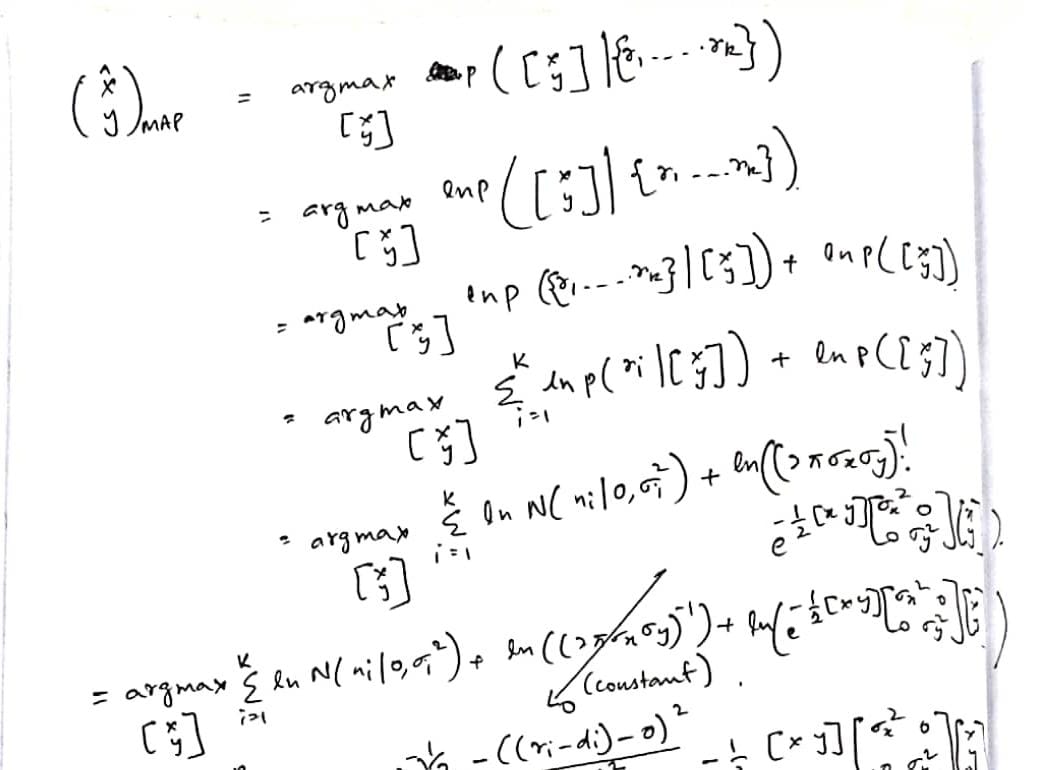 (x̂ y)MAP = argmax [x y] p([x y] | {r1, ....rk})
= argmax [x y] ln p([x y] | {r1 ....rk})
= argmax [x y] ln p({r1....rk} | [x y]) + ln p([x y])
= argmax [x y] Σ i=1 K ln p(ri | [x y]) + ln p([x y])
= argmax [x y] Σ i=1 K ln N(ni|0,σi²) + ln((2πσxσy)⁻¹. e^(-½[x y][σx² 0 0 σy²]⁻¹[x y]))
= argmax [x y] Σ i=1 K ln N(ni|0,σi²) + ln((2πσxσy)⁻¹) + ln(e^(-½[x y][σx² 0 0 σy²]⁻¹[x y]))
(constant).
-((ri-di)-0)² -½ [x y][σx² 0 σy²][x y]